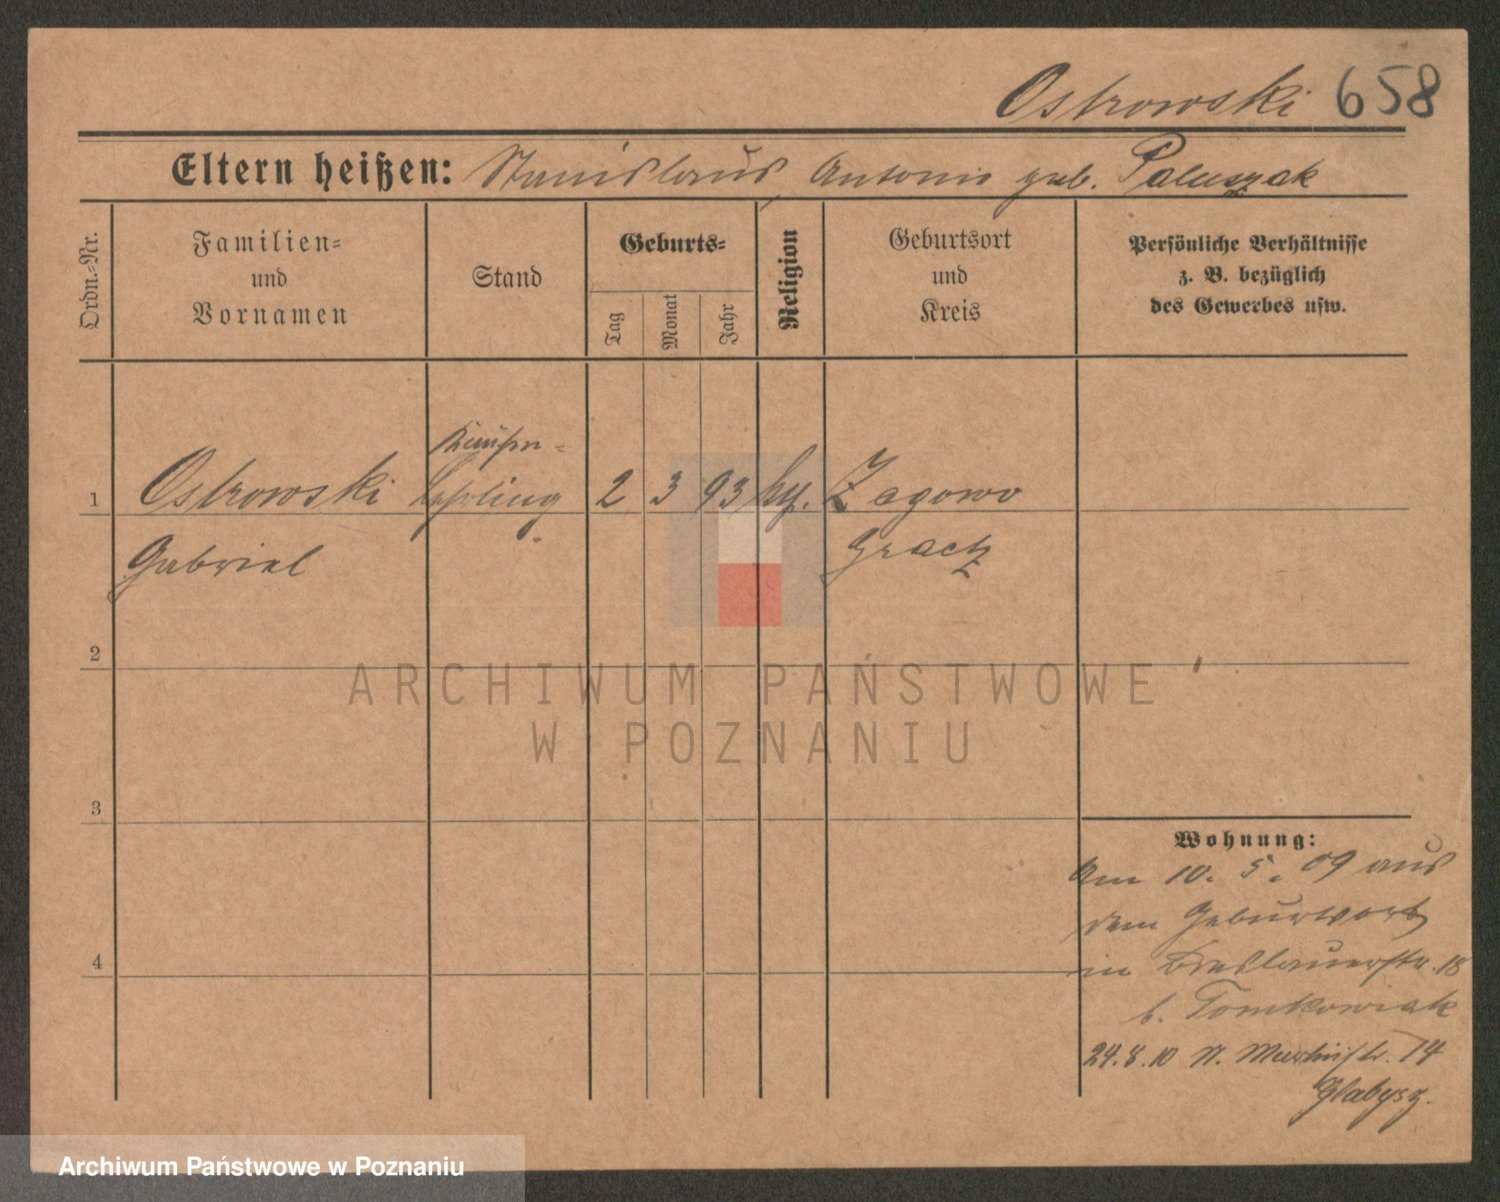 Ostrowski 658
Eltern heißen: Stanislaus, Antonie geb. Paluszak
Ordn.-Nr.
Familien-
und
Vornamen
Stand
Geburts-
Tag
Monat
Jahr
Religion
Geburtsort
und
Kreis
Persönliche Verhältnisse
z. B. bezüglich
des Gewerbes usw.
1 Ostrowski 2 3 93 Zegowo
lehrling
Gabriel Graetz
2
3
4
Wohnung:
Am 10. 5. 09 aus
dem Geburtsort
in Breslauerstr. 18
b. Tomkowiak
24.8.10 St. Martinstr. 74
ARCHIWUM PAŃSTWOWE
W POZNANIU
Archiwum Państwowe w Poznaniu